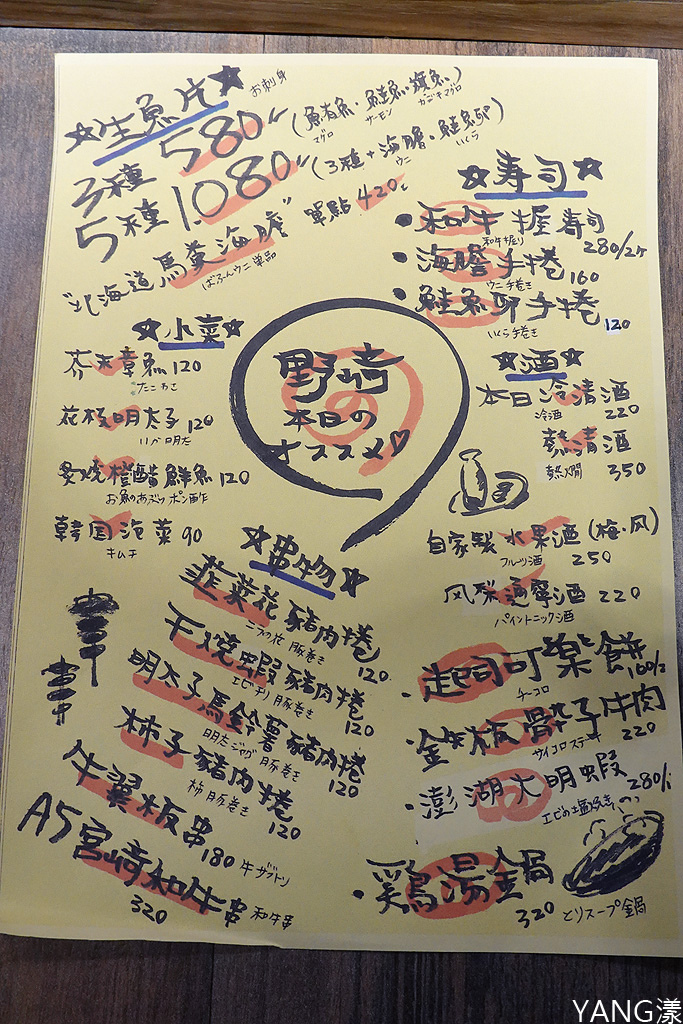 ☆生魚片☆ お刺身
3種 580 (鮪魚・鮭魚・旗魚)
マグロ サーモン カジキマグロ
5種 1.080 (3種+海膽・鮭魚卵)
ウニ いくら
"北海道馬糞海膽" 單點420
ばふんウニ 単品
☆寿司☆
・和牛握寿司 280/2ケ
和牛握り
・海膽手捲 160
ウニ手巻き
・鮭魚卵手捲 120
いくら手巻き
☆小菜☆
芥末章魚 120
たこわさ
花枝明太子 120
いか明太
炙燒橙醋鮮魚 120
お魚のあぶり ポン酢
韓国泡菜 90
キムチ
野崎
本日の
オススメ♡
☆酒☆
本日冷清酒
冷酒 220
熱清酒
熱燗 350
自家製水果酒(梅・风)
フルーツ酒 250
风梨通寧酒 220
パイントニック酒
☆串物☆
韮菜花豬肉捲
ニラの花 豚巻き 120
干燒蝦豬肉捲
エビチリ豚巻き 120
明太子馬鈴薯豬肉捲
明太ジャガ豚巻き 120
柿子豬肉捲
柿豚巻き 120
牛翼板串 180 牛ザブトン
A5宮崎和牛串
320 和牛串
・起司可樂餅
チーコロ 160/2
・鉄板骰子牛肉
サイコロステーキ 220
・澎湖大明蝦 280/
エビの塩焼き
・鶏湯鍋
320 とりスープ鍋
YANG漾